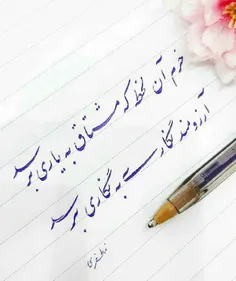 خرم آن لحظه که مشتاق به یاری برسد
آرزومند نگاری به نگاری برسد